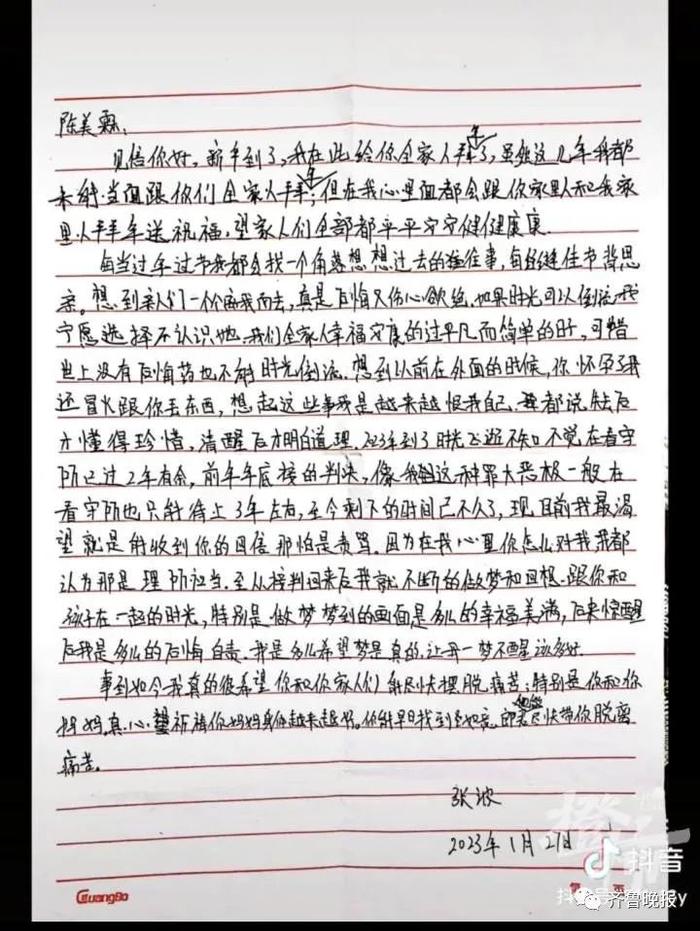 陈美霖:
见信你好。新年到了,我在此给你全家人拜年了,虽然这几年我都
未能当面跟你们全家人拜年;但在我心里面都会跟你家里人和我家
里人拜年送祝福,望家人们全部都平平安安健健康康.
每当过年过节我都会找一个角落想想过去的往事,每逢佳节背思
亲。想到亲人们一个个离我而去,真是后悔又伤心欲绝.如果时光可以倒流我
宁愿选择不认识她.我们全家人幸福安康的过平凡而简单的日子,可惜
世上没有后悔药也不能时光倒流.想到以前在外面的时候,你怀孕了我
还冒火跟你丢东西,想起这些事我是越来越恨我自己.都说失去后
才懂得珍惜,清醒后才明白道理.2023年到了时光飞逝不知不觉在看守
所已过2年有余,前年年底接的判决,像我这种罪大恶极一般在
看守所也只能待上3年左右,至今剩下的时间已不久了,现目前我最渴
望就是能收到你的回信那怕是责骂.因为在我心里你怎么对我我都
认为那是理所应当.至从接判回来后我就不断的做梦和回想.跟你和
孩子在一起的时光,特别是做梦梦到的画面是多么的幸福美满,后来惊醒
后我是多么的后悔自责.我是多么希望梦是真的.让我一梦不醒该多好.
事到如今我真的很希望你和你家人们能尽快摆脱痛苦;特别是你和你
妈妈.真心祈祷你妈妈身体越来越好.你能早日找到如意郎君尽快带你脱离
痛苦.
张波
2023年1月21日
GuangBo
第 页
抖音
抖音号
齐鲁晚报